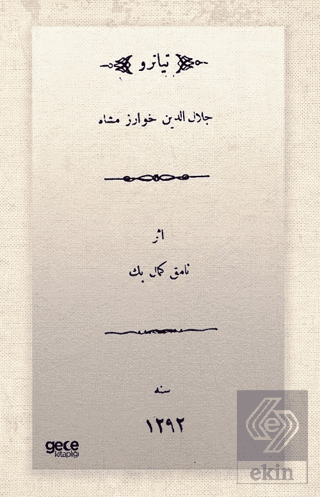 تیاترو
جلال الدین خوارز مشاه
اثر
نامق کمال بك
سنه
١٢٩٢
gece
kitaplığı
ekin